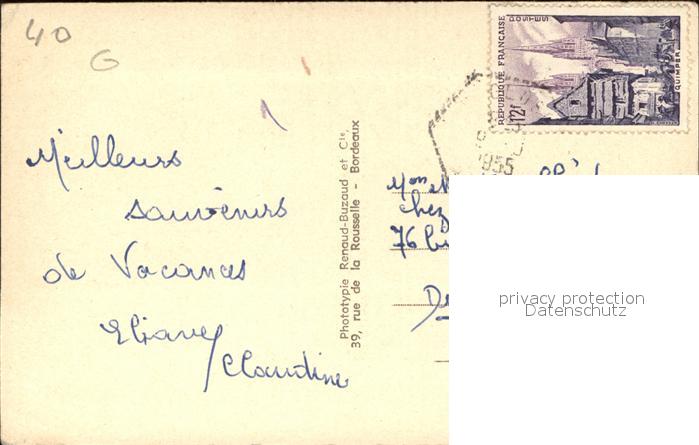 40
G
REPUBLIQUE FRANÇAISE
POSTES
12f
QUIMPER
1955
Meilleurs
souvenirs
de Vacances
Eliane
Claudine
Phototypie Renaud-Buzaud et Cie.
39, rue de la Rousselle - Bordeaux
chez
76
privacy protection
Datenschutz